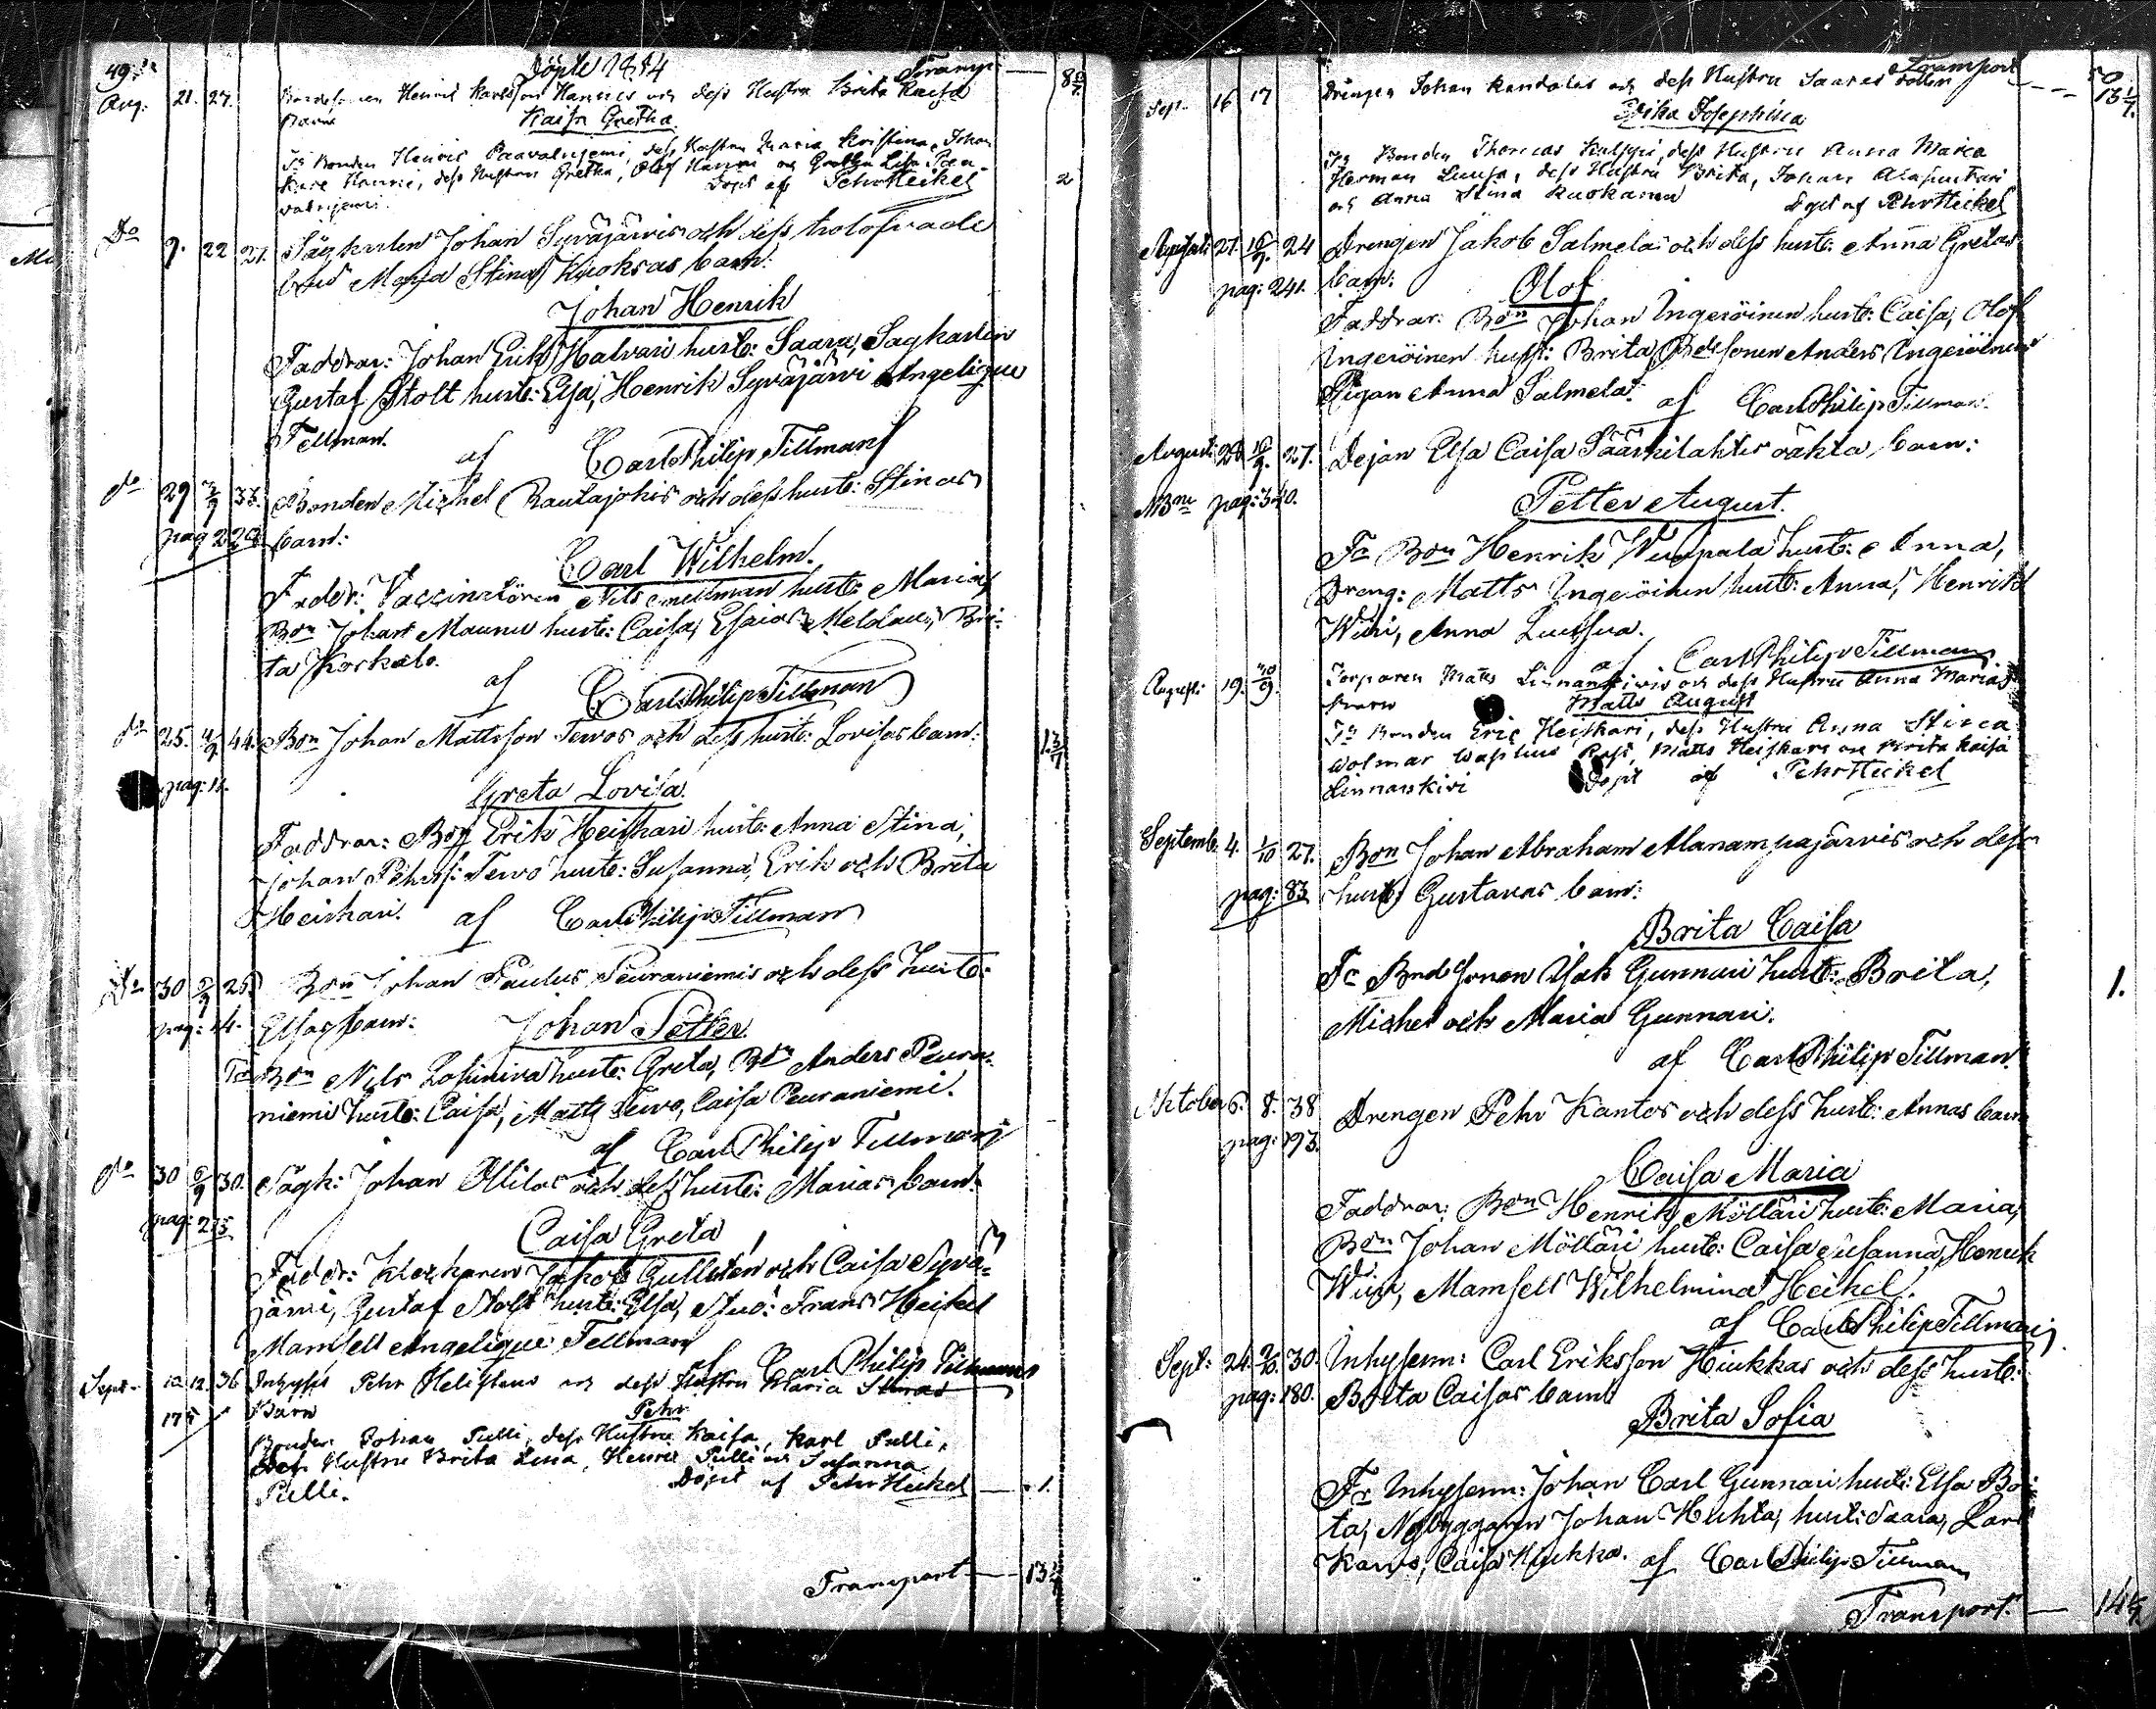 49.
Döpte 1854
Transp. 8 6/7
Aug. 21. 27. Bondesonen Henric Karlsson Hannus och dess Hustru Brita Kaisa
Barn Kaisa Gretha
Fr Bonden Henric Paavalniemi, dess Hustru Maria Kristina, Johan
Karl Hannu, dess Hustru Gretha, Olof Hannu och Gretha Lisa Paa-
valniemi. Döpt af Pehr Heikel 2
Do 9. 22 27. Sågkarlen Johan Syväjärvis och dess trolofvade
Maja Stina Kuoksas barn:
Johan Henrik
Faddrar: Johan Erik Halvari hust: Saara, Sagkarlen
Gustaf Stolt hust: Elsa, Henrik Syväjärvi Angelique
Fellman.
af Carl Philip Tillman
do 29 3/9 33. Bonden Michel Rautajokis och dess hust: Stinas
pag 228 barn:
Carl Wilhelm.
Fadder: Vaccinatören Nils Snellman hust: Maria,
Bon Johan Maunu hust: Caisa, Esaias Meldau, Bri-
ta Korkalo.
af Carl Philip Tillman
do 25. 4/9 44. Bon Johan Mattsson Tervos och dess hust: Lovisas barn: 1 3/7
pag: 11.
Greta Lovisa
Faddrar: Bon Erik Heiskari hust: Anna Stina,
Johan Pehrss: Tervo hust: Susanna, Erik och Brita
Heiskari. af Carl Philip Tillman
Do 30 5/9 26. Bon Johan Paulus Peuraniemis och dess hust:
pag: 14. Elsas barn: Johan Petter.
Fa Bon Nils Lohiniva hust: Greta, Bon Anders Peura-
niemi hust: Caisa, Matts Tervo, Caisa Peuraniemi.
af Carl Philip Tillman
do 30 6/9 30. Sågk: Johan Ollilas och dess hust: Marias barn.
pag: 275
Caisa Greta
Faddr: Klockaren Jakob Gullstén och Caisa Syvä-
järvi, Gustaf Stolt hust: Elsa, Stud: Frans Heikel
Mamsell Angelique Fellman
af Carl Philip Tillman
Sept. 10 12. 36 Inhyses Pehr Helistens och dess Hustru Maria Stinas
175 Barn Pehr
Bonden Johan Pulli, dess Hustru Kaisa, Karl Pulli,
dess Hustru Brita Lena, Henric Pulli och Susanna
Pulli. Döpt af Pehr Heikel 1.
Transport 13 1/7
50
Transport 13 1/7
Sept. 16 17 Drengen Johan Kandolas och dess Hustru Saaras dotter
Erika Josephina
Fr Bonden Thomas Kulppi, dess Hustru Anna Maria
Herman Luusa, dess Hustru Brita, Johan Alapuutari
och Anna Stina Kuokanen Döpt af Pehr Heikel
Augusti 27. 10/9. 24 Drengen Jakob Salmelas och dess hust: Anna Gretas
pag: 241. barn: Olof
Faddrar: Bon Johan Ingeröinen hust: Caisa, Olof
Ingeröinen hust: Brita, Bdesonen Anders Ingeröinen
Pigan Anna Salmela. af Carl Philip Tillman.
Augusti 28 10/9. 27. Dejan Elsa Caisa Sääskilahtis oäkta barn:
pag: 340.
Petter August.
Fa Bon Henrik Wuopala hust: Anna,
Dreng: Matts Ingeröinen hust: Anna, Henrik
Wiiri, Anna Luusua.
af Carl Philip Tillman
Augusti 19. 10/9. Torparen Matts Linnankivis och dess Hustru Anna Marias
Barn Matts August
Fr Bonden Eric Heiskari, dess Hustru Anna Stina
Wolmar Wasilius Matts Heiskari och Brita Kaisa
Linnankivi Döpt af Pehr Heikel
Septemb. 4. 1/10 27. Bon Johan Abraham Alanampajärvis och dess
pag: 83 hust: Gustavas barn:
Brita Caisa
Fr Bndsonen Isak Gunnari hust: Brita, 1.
Michel och Maria Gunnari.
af Carl Philip Tillman.
October 6. 8. 38 Drengen Pehr Kantos och dess hust: Annas barn
pag: 193.
Caisa Maria
Faddrar: Bon Henrik Möllari hust: Maria,
Bon Johan Mölläri hust: Caisa Susanna, Henrik
Mamsell Wilhelmina Heikel.
af Carl Philip Tillman
Sept: 24. 30. Inhysenn: Carl Eriksson Hiukkas och dess hust:
pag: 180. Brita Caisas barn
Brita Sofia
Fr Inhysenn: Johan Carl Gunnari hust: Elsa Bri-
ta, Nybyggaren Johan Huhta, hust: Saara, Lars
Caisa Hiukka. af Carl Philip Tillman
Transport. 14 1/7